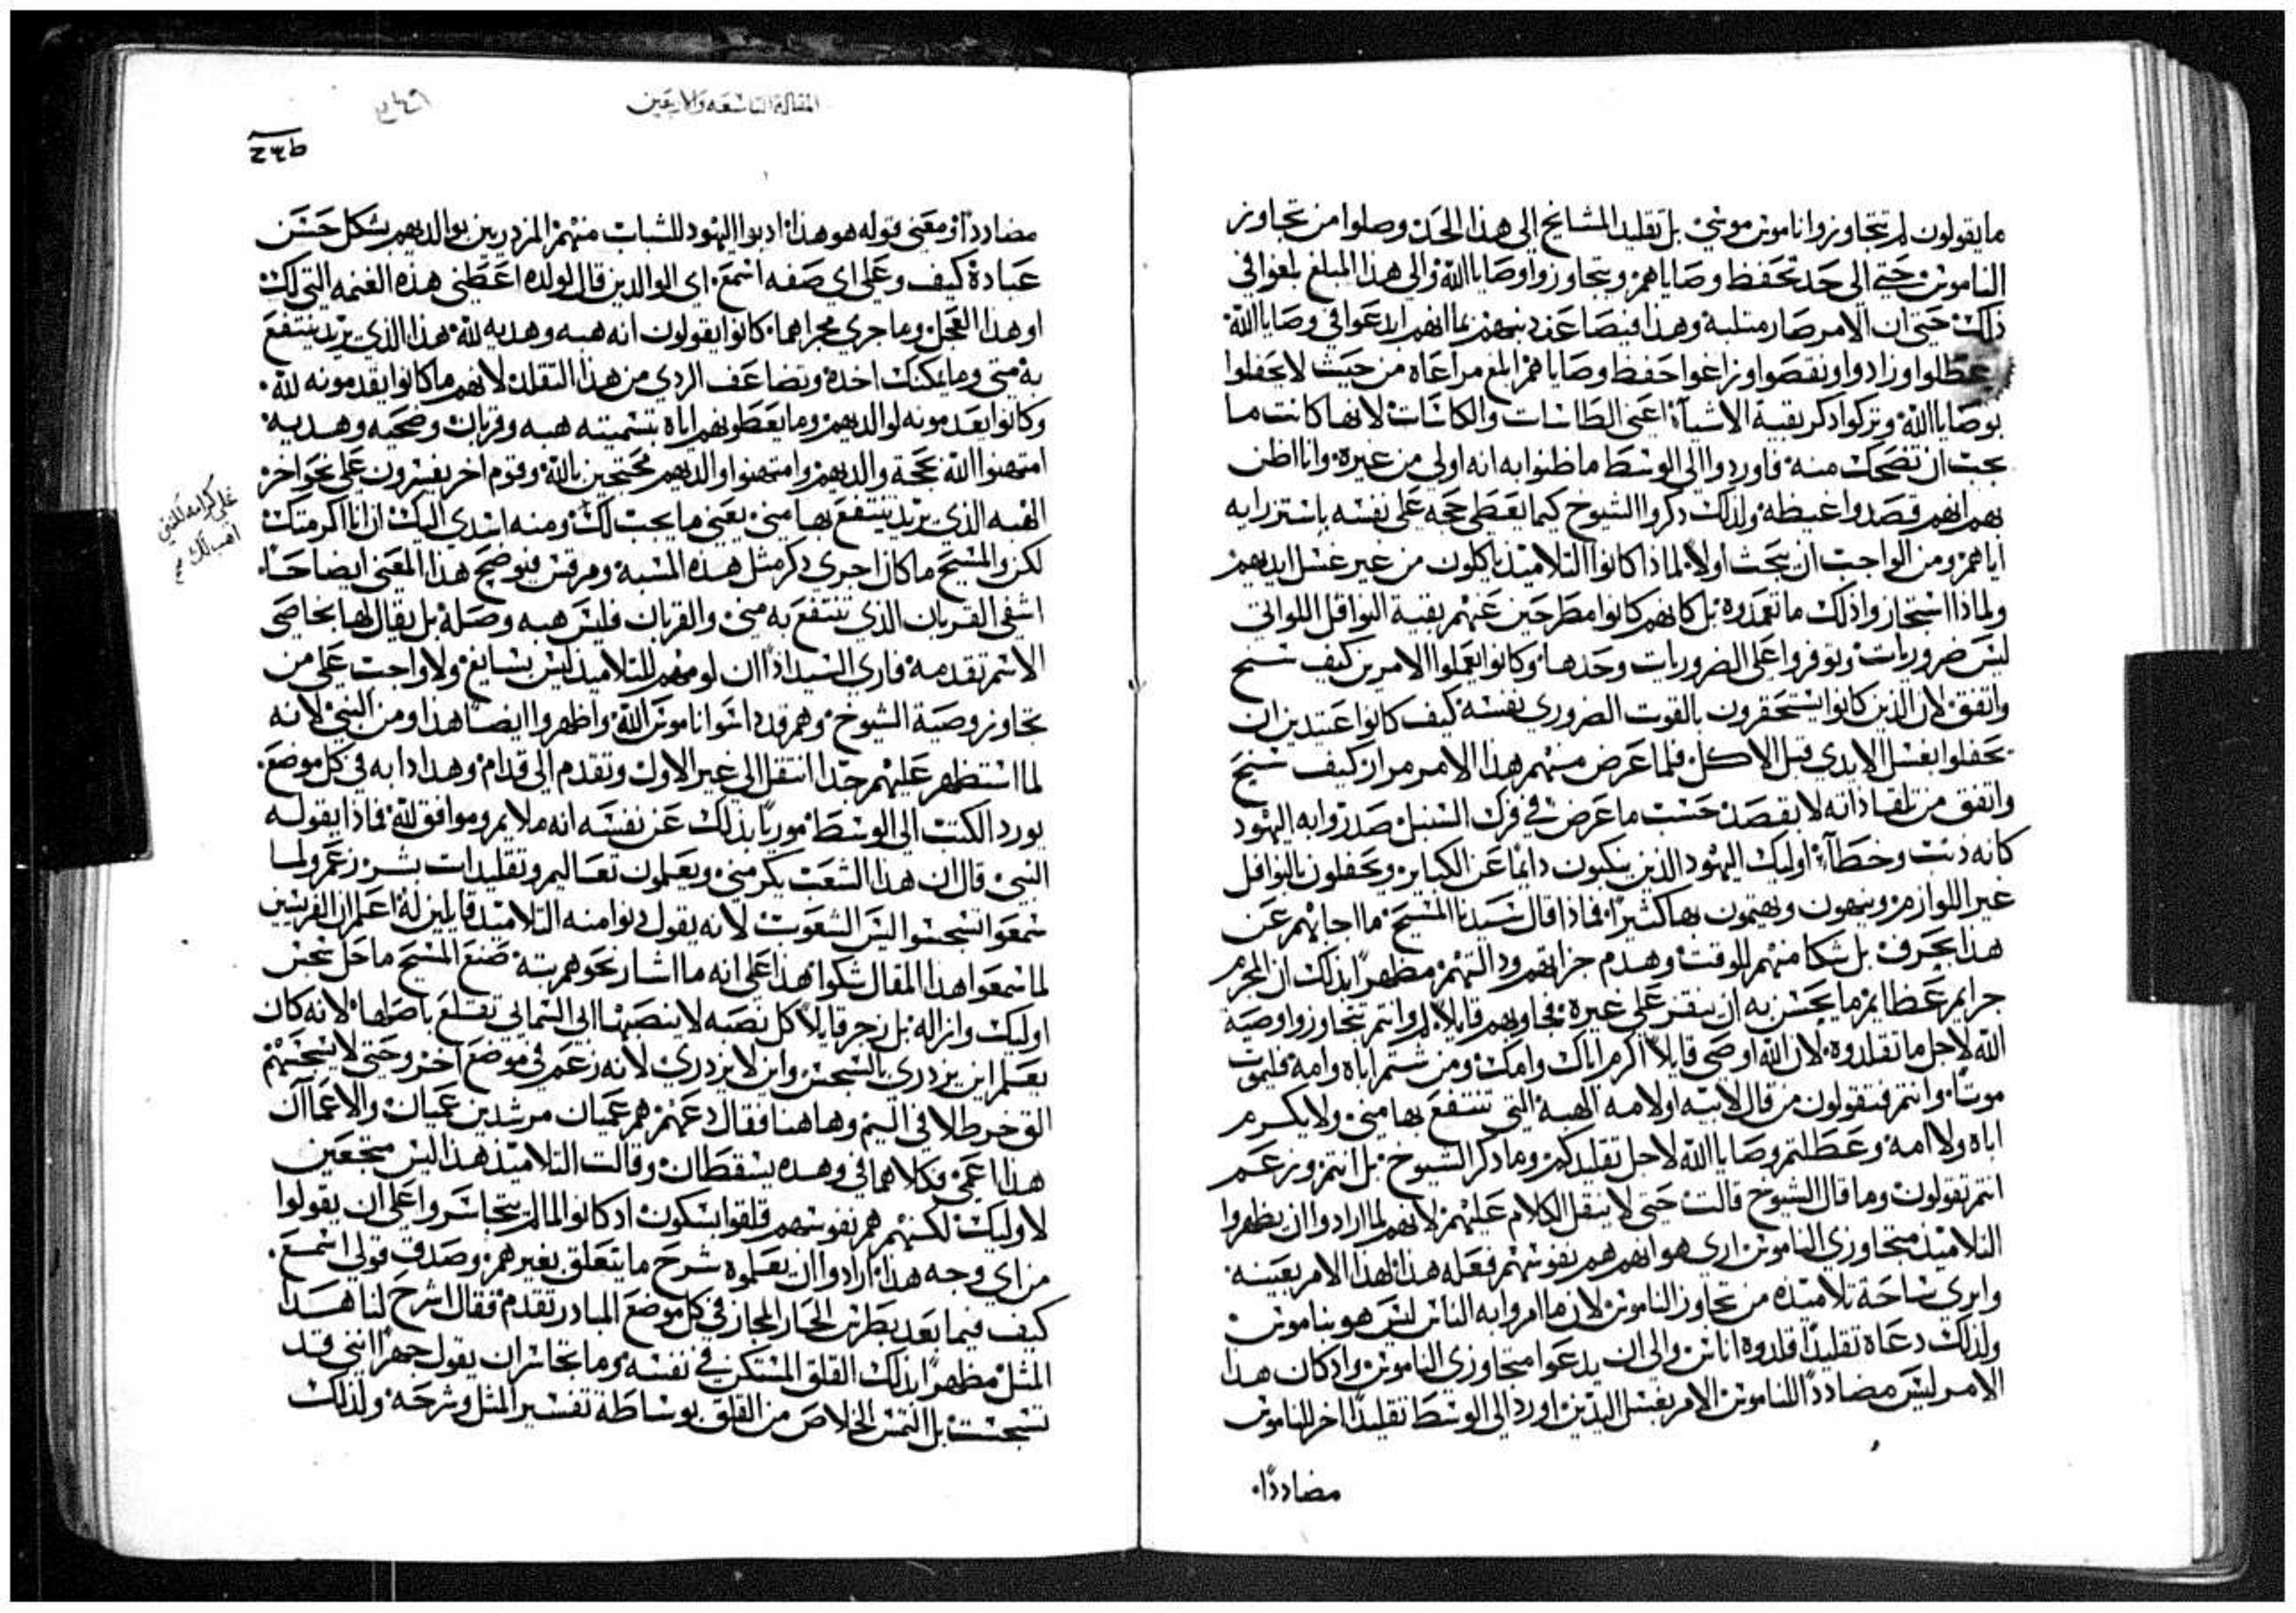 ما يقولون لم تتجاوزوا ناموس موسى بل تقليد المشايخ الى هذا الحد وصلوا من تجاوز
الناموس حتى الى حد تحفظ وصاياهم ويتجاوزوا وصايا الله والى هذا المبلغ بلغوا في
ذلك حتى ان الامر صار مثلبة وهذا فيضاعف ذنبهم بما انهم ابدعوا في وصايا الله
عطلوا وزادوا ونقصوا وزاغوا حفظ وصاياهم ابلغ مراعاه من حيث لا يحفلوا
بوصايا الله وتركوا ذكر بقية الاشيآء اعني الطاسات والكاسات لانها كانت مما
يجب ان تضحك منه فاوردوا الى الوسط ما ظنوا به انه اولى من غيره وانا اظن
بهم انهم قصدوا غيظه ولذلك ذكروا الشيوخ كيما يعطي حجه على نفسه باستزرايه
اياهم ومن الواجب ان يبحث اولا لماذا كانوا التلاميذ ياكلون من غير غسل ايديهم
ولماذا استجازوا ذلك ما تعمدوه بل كانهم كانوا مطرحين عنهم بقية النوافل اللواتي
ليس ضروريات وتوفروا على الضروريات وحدها وكانوا يعملوا الامرين كيف سنح
واتفق لان الذين كانوا يستحقرون بالقوت الضروري نفسه كيف كانوا عتيدين ان
يحفلوا بغسل الايدي قبل الاكل فلما عرض منهم هذا الامر مرارً كيف سنح
واتفق من تلقا ذاته لا بقصد حسب ما عرض في فرك السنبل صدروا به اليهود
كانه ذنب وخطآء اوليك اليهود الذين ينكبون دايمًا عن الكباير ويحفلون بالنوافل
غير اللوازم وينبهون ويهتمون بها كثيرًا فماذا قال سيدنا المسيح ما اجابهم عن
هذا بحرف بل شكا منهم للوقت وهدم جزايهم ورد التهم مظهرًا بذلك ان المجرم
جرايم عظايم ما يحسن به ان ينقر على غيره فجاوبهم قايلاً لم وانتم تتجاوزوا وصية
الله لاجل ما تقلدوه لان الله اوصى قايلاً اكرم اباك وامك ومن شتم اباه وامه فليمت
موتًا وانتم فتقولون من قال لابيه او لامه الهبة التي تنتفع بها مني ولا يكرم
اباه ولا امه وعطلتم وصايا الله لاجل تقليدكم وما ذكر الشيوخ بل انتم وزعم
انتم تقولون وما قال الشيوخ قالت حتى لا يثقل الكلام عليهم لانهم لما ارادوا ان يظهروا
التلاميذ متجاوزي الناموس ارى هو انهم هم نفوسهم فعله هذا لهذا الامر بعينه
وابري ساحة تلاميذه من تجاوز الناموس لان ما امروا به الناس ليس هو بناموس
ولذلك دعاه تقليدًا قلدوه اناس والى ان يدعوا متجاوزي الناموس واذ كان هذا
الامر ليس مضاددًا للناموس الامر بغسل اليدين اورد الى الوسط تقليدًا اخر للناموس
مضاددًا
المقالة التاسعه والاربعين
مضاددًا ومعنى قوله هو هذا ادبوا اليهود للشباب منهم المزدريين بوالديهم بشكل حسن
عبادة كيف وعلى اي صفه اسمع اي الوالدين قال لولده اعطني هذه الغنمه التي لك
او هذا العجل وما جرى مجراهما كانوا يقولون انه هبه وهديه لله هذا الذي تريد ينتفع
به مني وما يمكنك اخذه وتضاعف الردي من هذا التقلد لانهم ما كانوا يقدمونه لله
وكانوا يعدمونه لوالديهم وما يعطونهم اياه بتسميته هبه وقربان وضحيه وهديه
امتهنوا الله بحجة والديهم وامتهنوا والديهم محتجين بالله وقوم اخر يفسرون على نحو اخر
الهبه الذي تريد ينتفع بها مني يعني ما يجب لك ومنه اسدي اليك ان انا اكرمتك
على كرامه لكني اهب لك
لكن والمسيح ما كان اجرى ذكر مثل هذه المسبة ومرقس فيوضح هذا المعنى ايضاحًا
اشفى القربان الذي تنتفع به مني والقربان فليس هبه وصلة بل يقال لها بخاصي
الاسم تقدمه فارى السيد اذًا ان لومهم للتلاميذ ليس بسايغ ولا واجب على من
تجاوز وصية الشيوخ وهم قد داسوا ناموس الله واظهروا ايضًا هذا ومن النبي لانه
لما استظهر عليهم جدًا انتقل الى غير الاول وتقدم الى قدام وهذا دابه في كل موضع
يورد الكتب الى الوسط موريًا بذلك عن نفسه انه ملايم وموافق لله فماذا يقوله
النبي قال ان هذا الشعب يكرمني ويعلمون تعاليم وتقليدات بشر زعم ولما
سمعوا تسجسوا ليس الشعوب لانه يقول دنوا منه التلاميذ قايلين له اعلم ان الفريسين
لما سمعوا هذا المقال شكوا هذا على انه ما اشار نحوهم بته صنع المسيح ما حل سجس
اوليك وازاله بل زجر قايلاً كل نصبه لا ينصبها ابي السمايي تقتلع باصلها لانه كان
يعلم اين يزدري بالسجس واين لا يزدري لانه زعم في موضع اخر وحتى لا يسجسهم
الق خرطلا في اليم وهاهنا فقال دعهم هم عميان مرشدين عميان والاعما ان
هدا اعمى فكلاهما في وهده يسقطان وقالت التلاميذ هذا ليس متجعين
لاوليك لكنهم هم نفوسهم قلقوا بسكون اذ كانوا لما لم يتجاسروا على ان يقولوا
من اي وجه هذا ارادوا ان يعلموه شرح ما يتعلق بغيرهم وصدق قولي اسمع
كيف فيما بعد بطرس الحار المجاز في كل موضع المبادر تقدم فقال اشرح لنا هذا
المثل مظهرًا بذلك القلق المستكن في نفسه وما تجاسر ان يقول جهرًا انني قد
تسجست بل التمس الخلاص من القلق بوساطة تفسير المثل وشرحه ولذلك